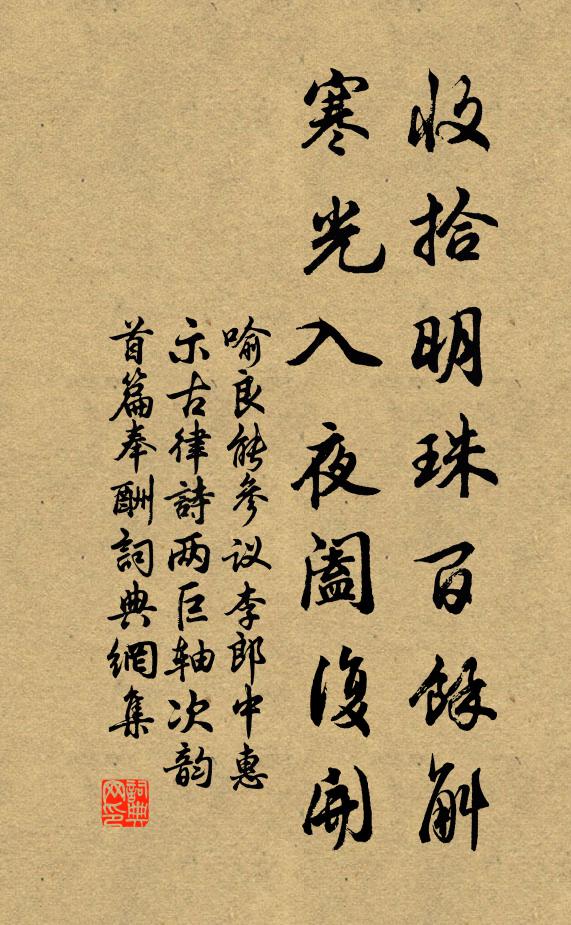 收拾明珠百餘斛
寒光入夜阖復開
喻良能參议李郎中惠
示古律詩两巨轴次韵
首篇奉酬詞典網集
詞典网印